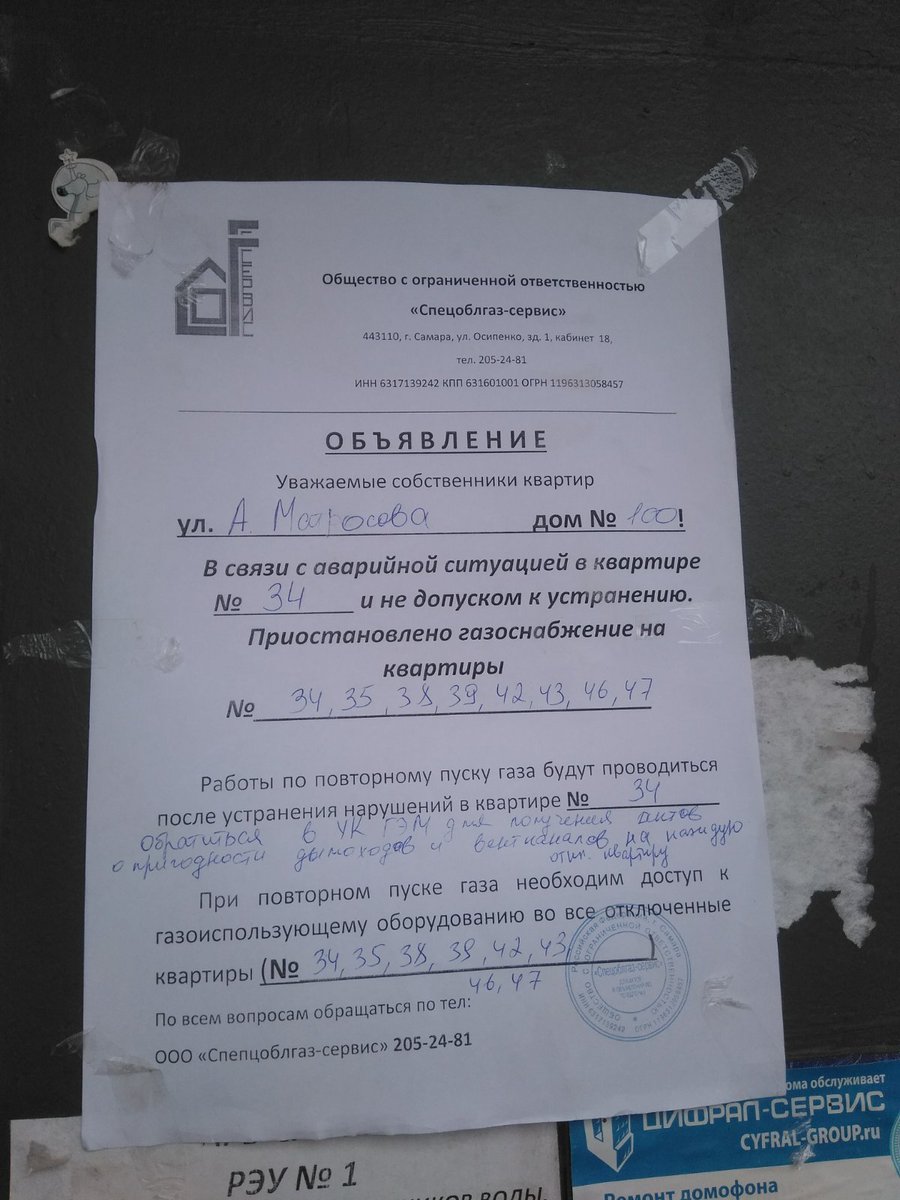 Общество с ограниченной ответственностью
«Спецоблгаз-сервис»
443110, г. Самара, ул. Осипенко, зд. 1, кабинет 18,
тел. 205-24-81
ИНН 6317139242 КПП 631601001 ОГРН 1196313058457
ОБЪЯВЛЕНИЕ
Уважаемые собственники квартир
ул. А. Матросова дом № 100!
В связи с аварийной ситуацией в квартире
№ 34 и не допуском к устранению.
Приостановлено газоснабжение на
квартиры
№ 34, 35, 38, 39, 42, 43, 46, 47
Работы по повторному пуску газа будут проводиться
после устранения нарушений в квартире № 34
обратиться в УК ГЭМ для получения актов
о пригодности дымоходов и вентканалов на каждую
откл. квартиру
При повторном пуске газа необходим доступ к
газоиспользующему оборудованию во все отключенные
квартиры (№ 34, 35, 38, 39, 42, 43, )
46, 47
«Спецоблгаз-сервис»
По всем вопросам обращаться по тел:
ООО «Спепцоблгаз-сервис» 205-24-81
РЭУ № 1
ома обслуживает
ЦИФРАЛ-СЕРВИС
CYFRAL-GROUP.ru
Ремонт домофона